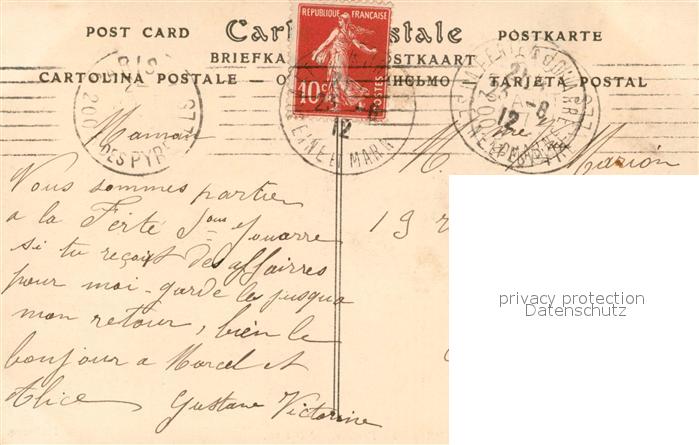 POST CARD Carte Postale POSTKARTE
BRIEFKA POSTKAART
CARTOLINA POSTALE TARJETA POSTAL
REPUBLIQUE FRANÇAISE
10c POSTES
12
12
DES PYR
SEINE ET MARNE
Maman
Vous sommes partien
a la Ferté sous Jouarre
si tu reçoit des affairres
pour moi garde les jusqua
mon retour, bien le
bonjour a Marcel et
Alice Gustave Victorine
M. Marion
19
privacy protection
Datenschutz